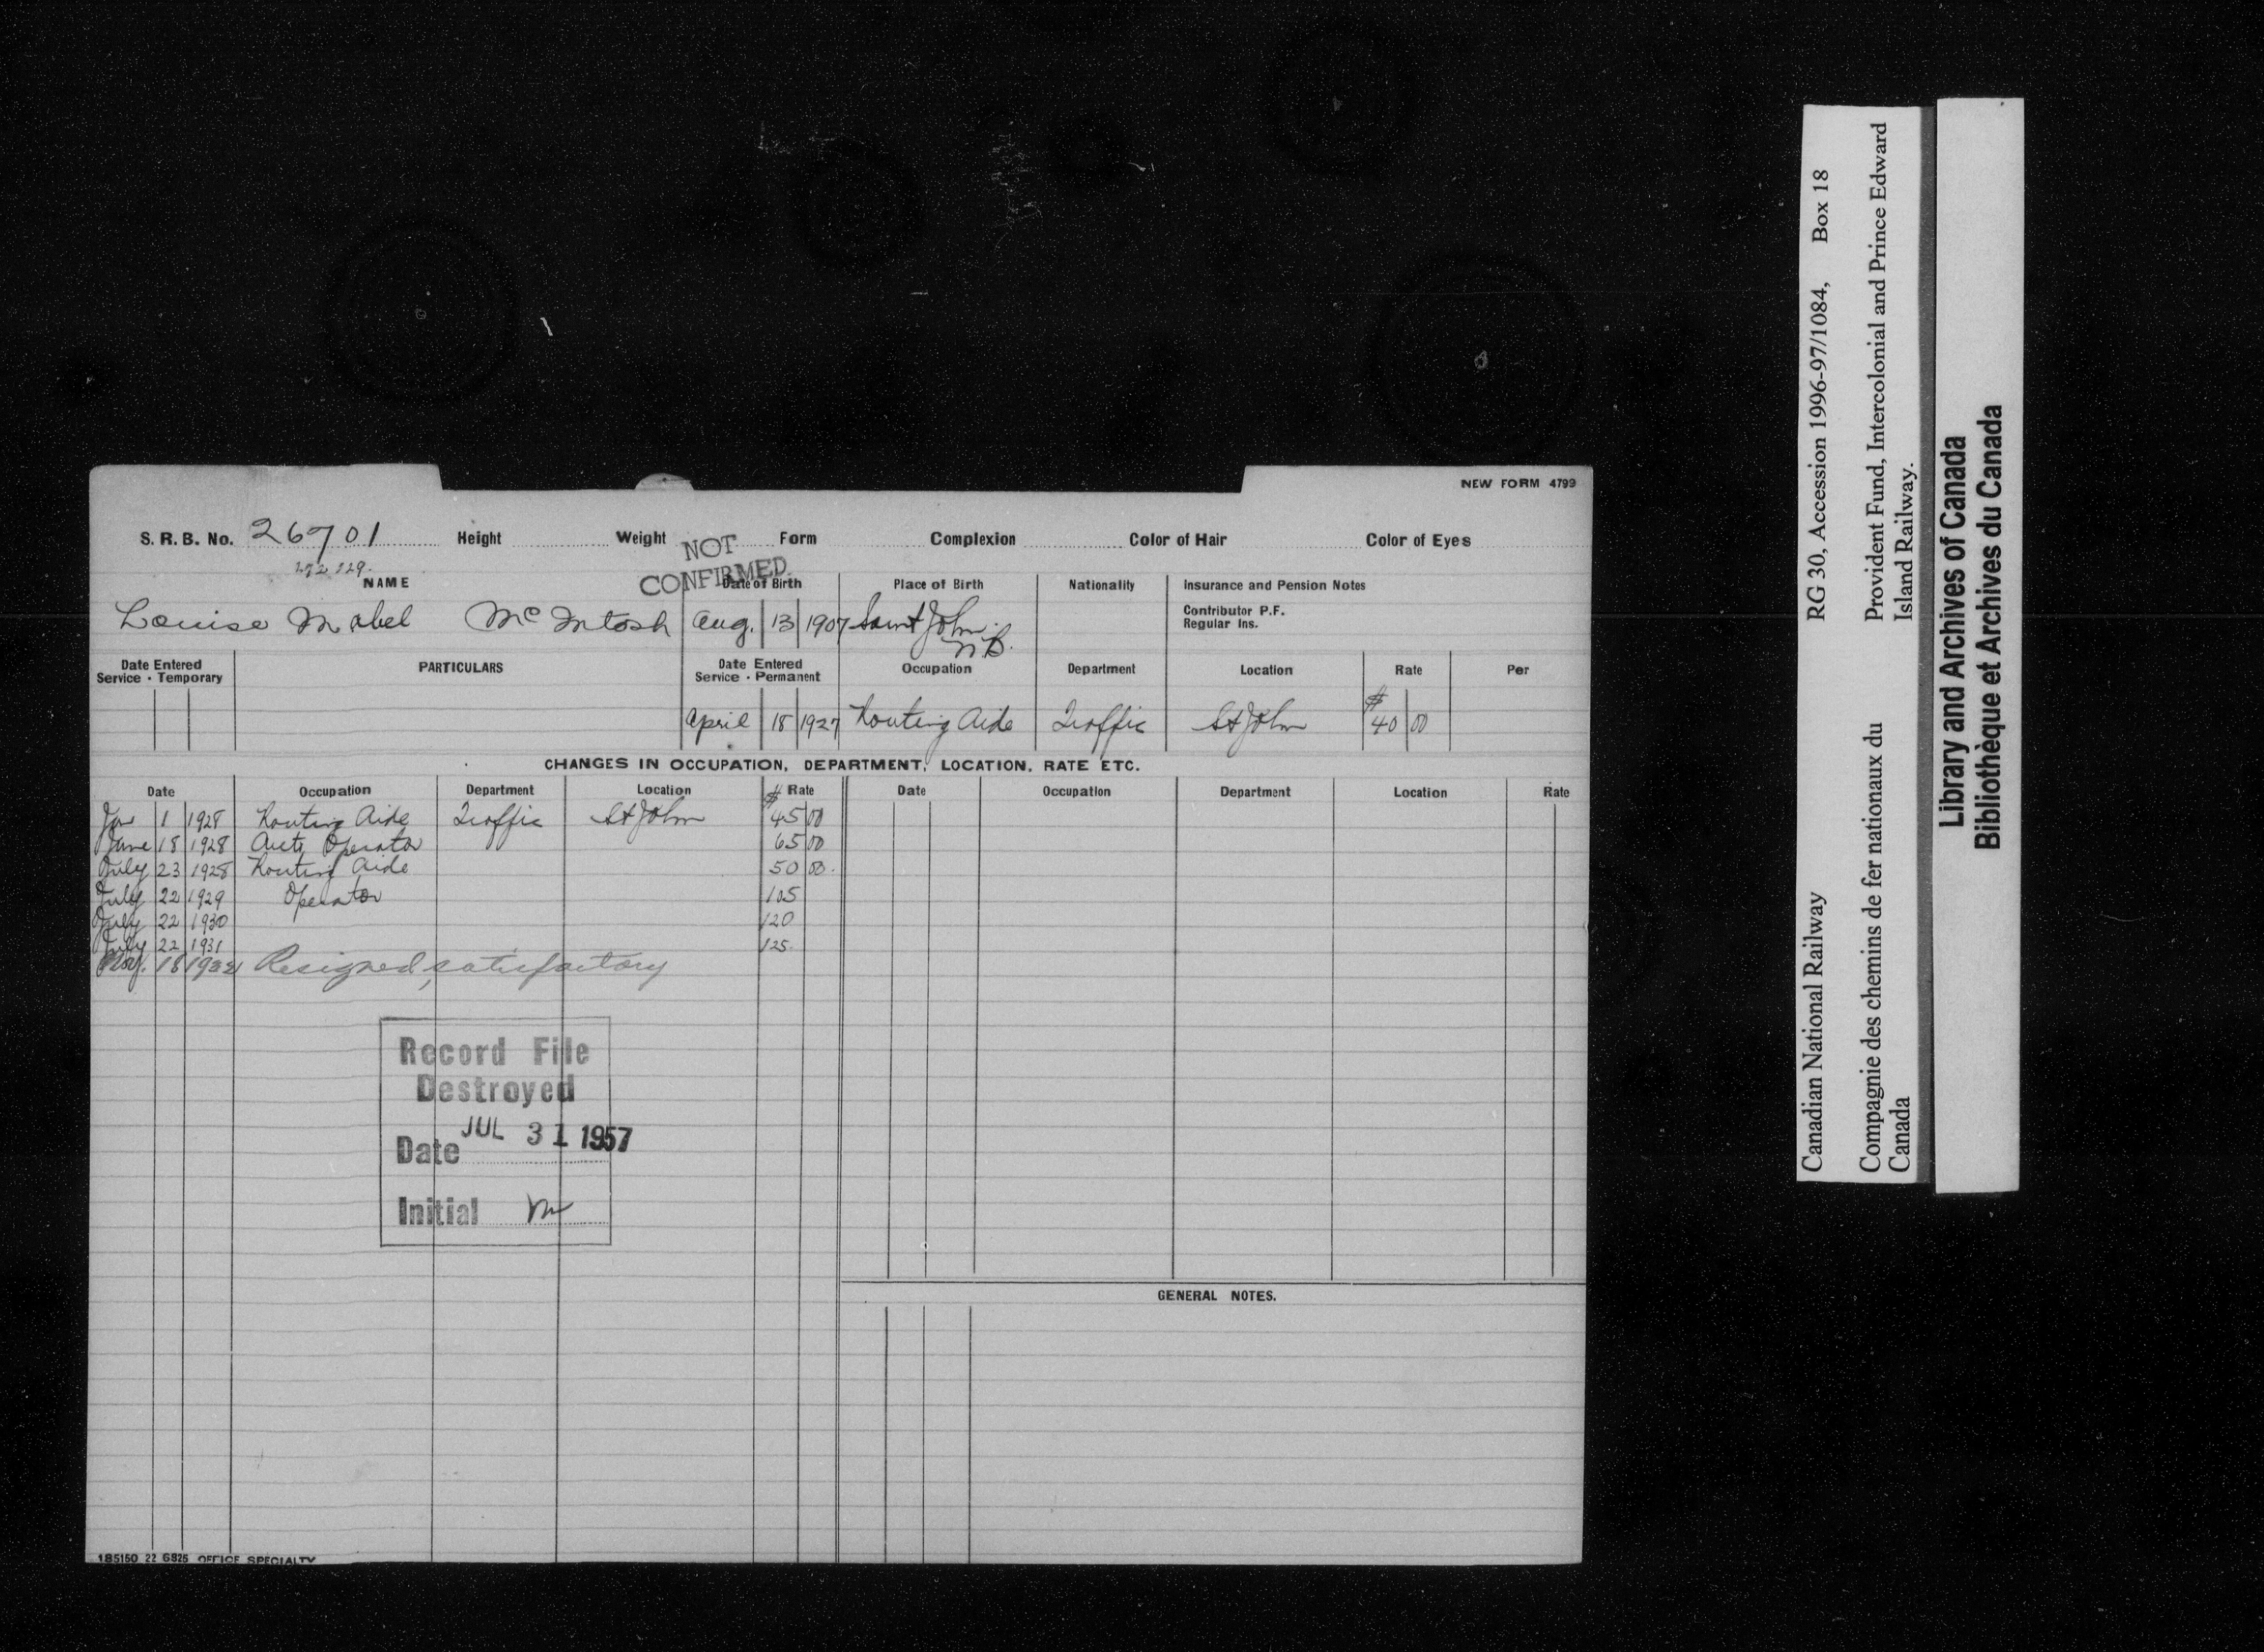 NEW FORM 4799
S. R. B. No. 26701 Height Weight Form Complexion Color of Hair Color of Eyes
272129.
NOT
CONFIRMED
NAME Date of Birth Place of Birth Nationality Insurance and Pension Notes
Contributor P.F.
Regular Ins.
Louise Mabel McIntosh Aug. 13 1907 Saint John
N.B.
Date Entered
Service - Temporary PARTICULARS Date Entered
Service - Permanent Occupation Department Location Rate Per
April 18 1927 Routing Aide Traffic St John $ 40 00
CHANGES IN OCCUPATION, DEPARTMENT, LOCATION, RATE ETC.
Date Occupation Department Location $ Rate Date Occupation Department Location Rate
Jan 1 1928 Routing Aide Traffic St John 45 00
June 18 1928 Operator 65 00
July 23 1928 Routing Aide 50 00.
July 22 1929 Operator 105
July 22 1930 120
July 22 1931 125.
18 Resigned, satisfactory
Record File
Destroyed
Date JUL 31 1957
Initial
GENERAL NOTES.
185150 22 6825 OFFICE SPECIALTY
Canadian National Railway RG 30, Accession 1996-97/1084, Box 18
Compagnie des chemins de fer nationaux du Provident Fund, Intercolonial and Prince Edward
Canada Island Railway.
Library and Archives of Canada
Bibliothèque et Archives du Canada